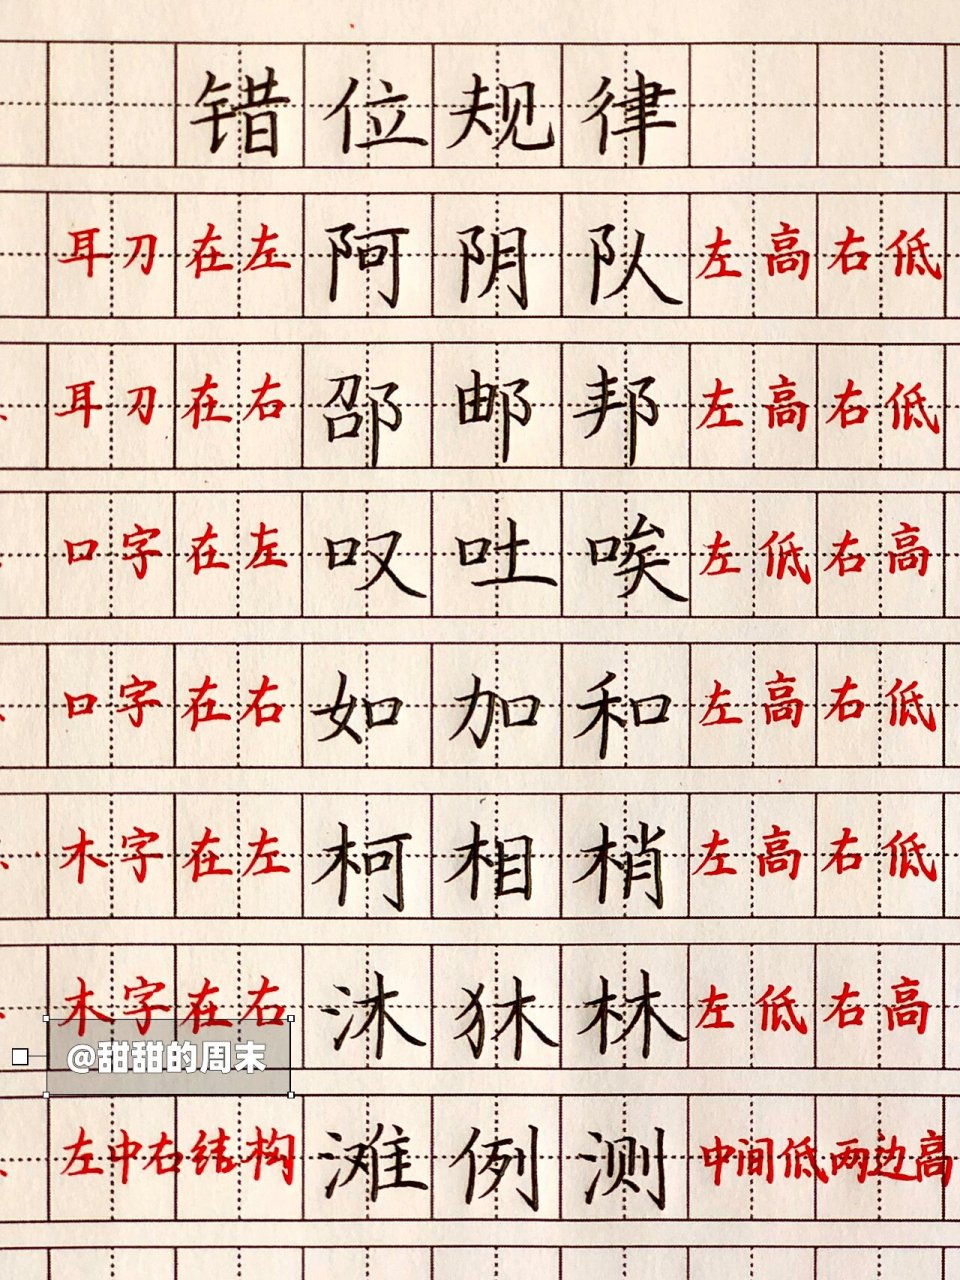 错位规律
耳刀在左 阿阴队 左高右低
耳刀在右 邵邮邦 左高右低
口字在左 叹吐唉 左低右高
口字在右 如加和 左高右低
木字在左 柯相梢 左高右低
木字在右 沐林 左低右高
@甜甜的周末
左中右结构 滩例测 中间低两边高